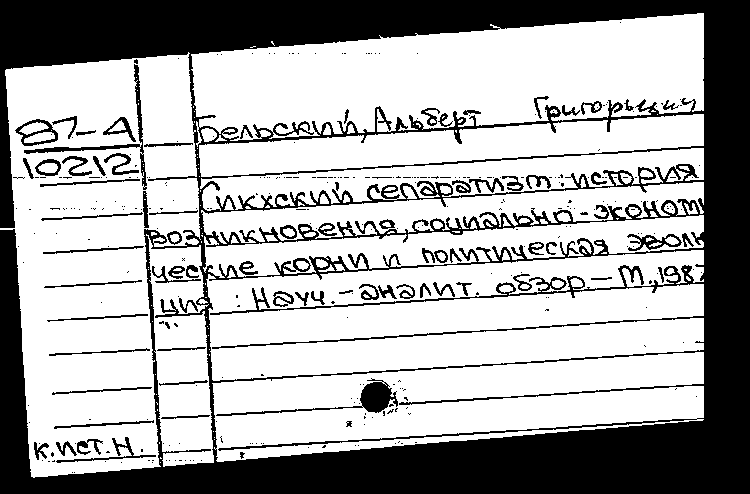 87-А
10212
Бельский, Альберт Григорьевич
Сикхский сепаратизм: история
возникновения, социально-эконоm
ческие корни и политическая эволю
ция : Науч.-аналит. обзор.- М., 1987
к.ист.н.